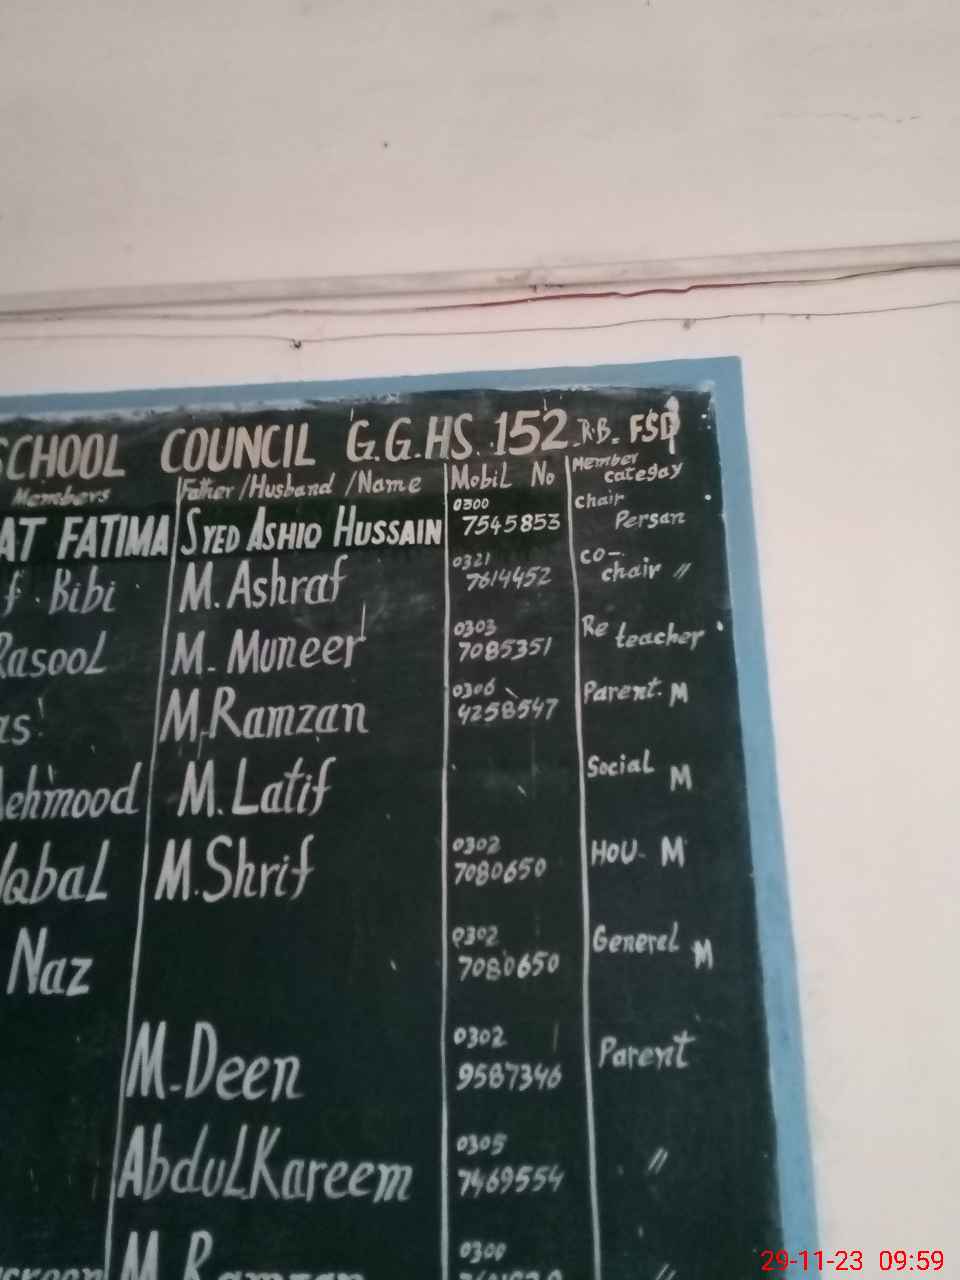 SCHOOL COUNCIL G.G.HS. 152 R.B. FSD
Members Father/Husband/Name Mobil No Member categay
FATIMA SYED ASHIQ HUSSAIN 0300 7545853 Chair Persan
Bibi M. Ashraf 0321 7614452 co-chair "
Rasool M. Muneer 0303 7085351 Re teacher
M.Ramzan 0306 4258547 Parent. M
Mehmood M. Latif Social M
Iqbal M.Shrif 0302 7080650 HOU- M
Naz 0302 7080650 General M
M.Deen 0302 9587346 Parent
Abdul Kareem 0305 7469554 "
M.Ramzan 0300 "
29-11-23 09:59